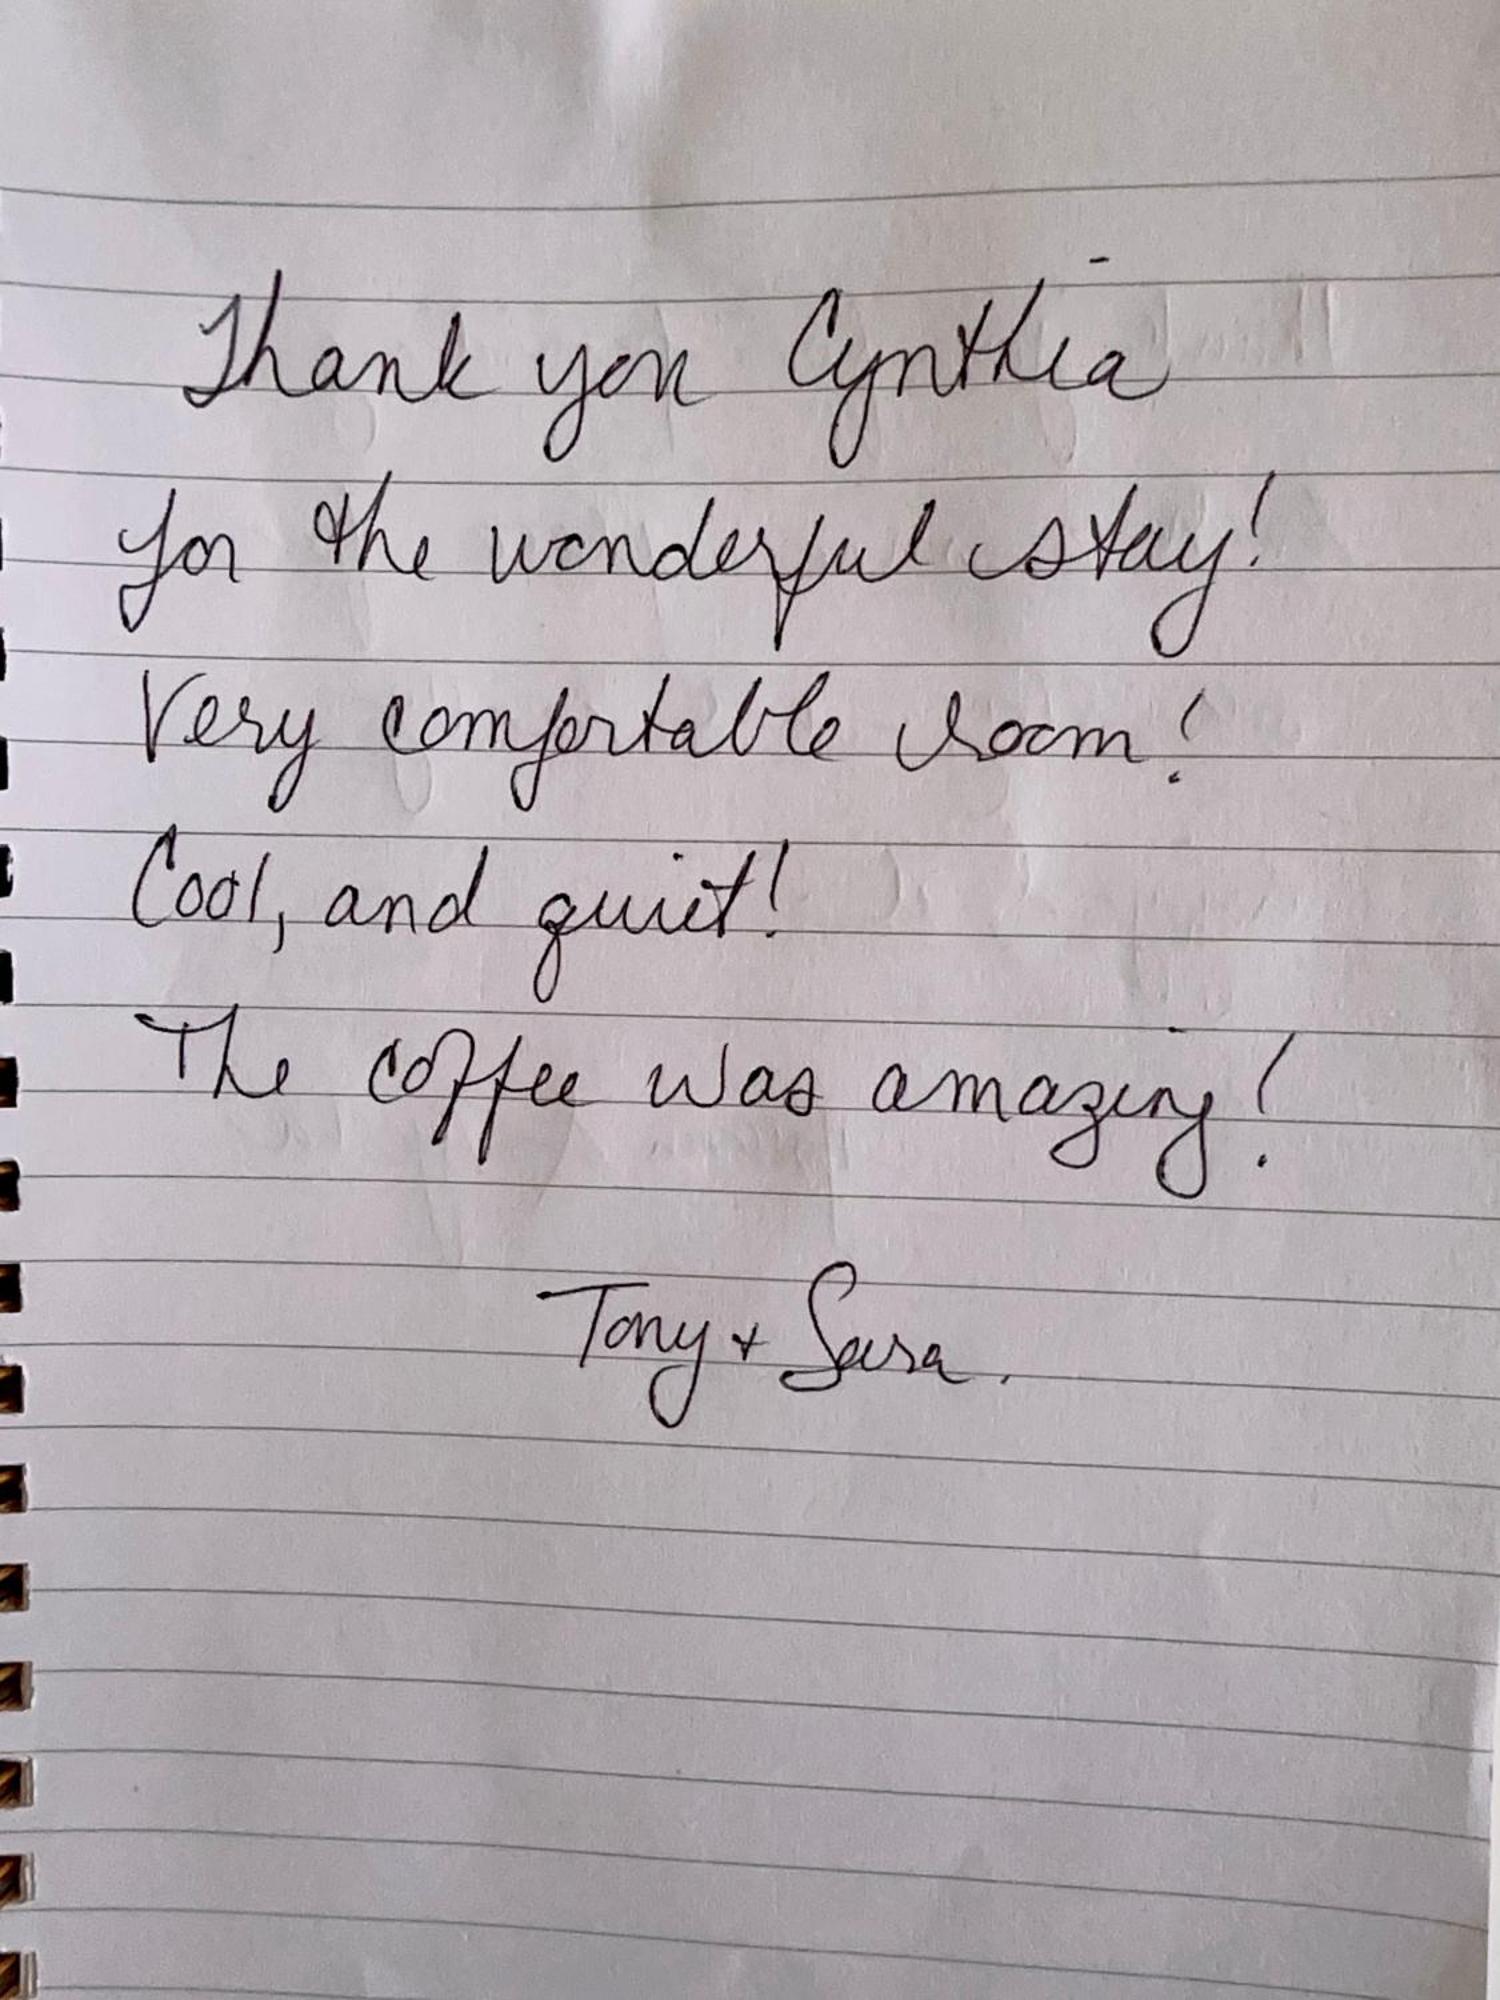 Thank you Cynthia
for the wonderful stay!
Very comfortable room!
Cool, and quiet!
The coffee was amazing!
Tony + Sara.